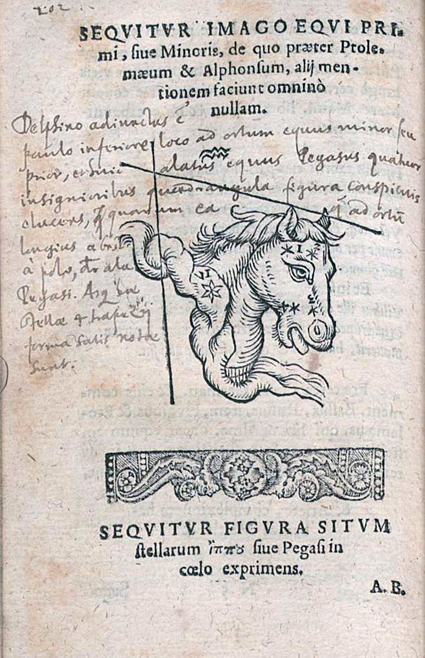 202
SEQVITVR IMAGO EQVI PRI-
mi, siue Minoris, de quo præter Ptole-
mæum & Alphonsum, alij men-
tionem faciunt omninò
nullam.
Delphino adiunctus est
paulo inferiore loco ad ortum equus minor seu
prior, alatus equus Pegasus quatuor
insignioribus quadrangula figura conspicuis
ad ortū
longius
à polo, ala
Pegasi.
stellæ &
forma satis notæ
sunt.
SEQVITVR FIGVRA SITVM
stellarum ἵππου siue Pegasi in
cœlo exprimens.
A. B.